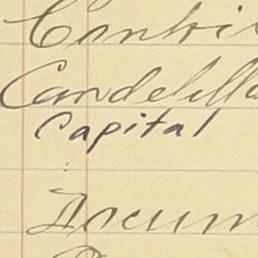 Contri
Candelilla
Capital
Docum